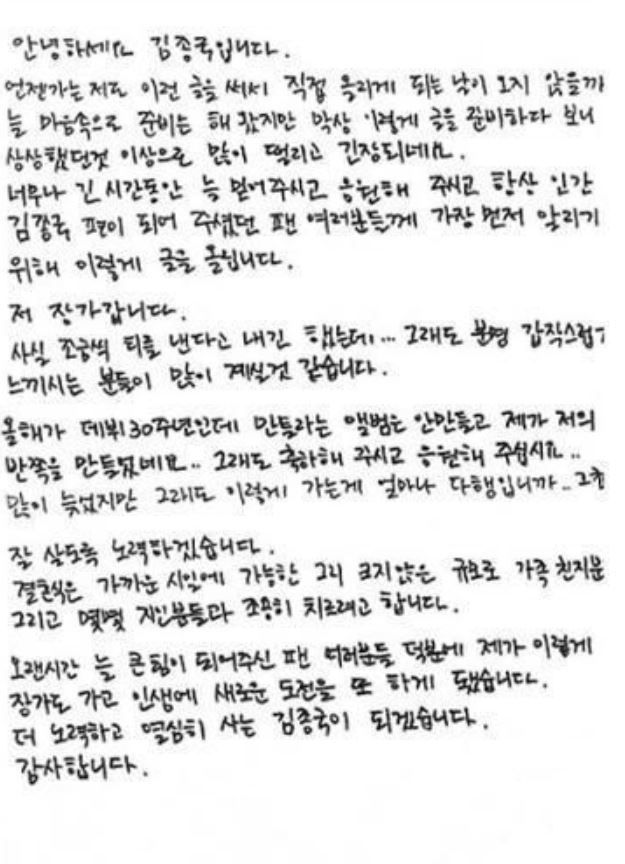 안녕하세요 김종국입니다.
언젠가는 저도 이런 글을 써서 직접 올리게 되는 낳이 오지 않을까
늘 마음속으로 준비는 해 왔지만 막상 이렇게 글을 준비하다 보니
상상했던것 이상으로 많이 떨리고 긴장되네요.
너무나 긴 시간동안 늘 믿어주시고 응원해 주시고 항상 인간
김종국 편이 되어 주셨던 팬 여러분들께 가장 먼저 알리기
위해 이렇게 글을 올립니다.
저 장가갑니다.
사실 조금씩 티를 낸다고 내긴 했는데... 그래도 분명 갑작스럽
느끼시는 분들이 많이 계실것 같습니다.
올해가 데뷔30주년인데 만들라는 앨범은 안만들고 제가 저의
반쪽을 만들었네요.. 그래도 축하해 주시고 응원해 주십시요..
많이 늦었지만 그래도 이렇게 가는게 얼마나 다행입니까.. 그쵸
잘 살도록 노력하겠습니다.
결혼식은 가까운 시일에 가능한 그리 크지않은 규모로 가족 친지분
그리고 몇몇 지인분들과 조용히 치르려고 합니다.
오랜시간 늘 큰힘이 되어주신 팬 여러분들 덕분에 제가 이렇게
장가도 가고 인생에 새로운 도전을 또 하게 됐습니다.
더 노력하고 열심히 사는 김종국이 되겠습니다.
감사합니다.